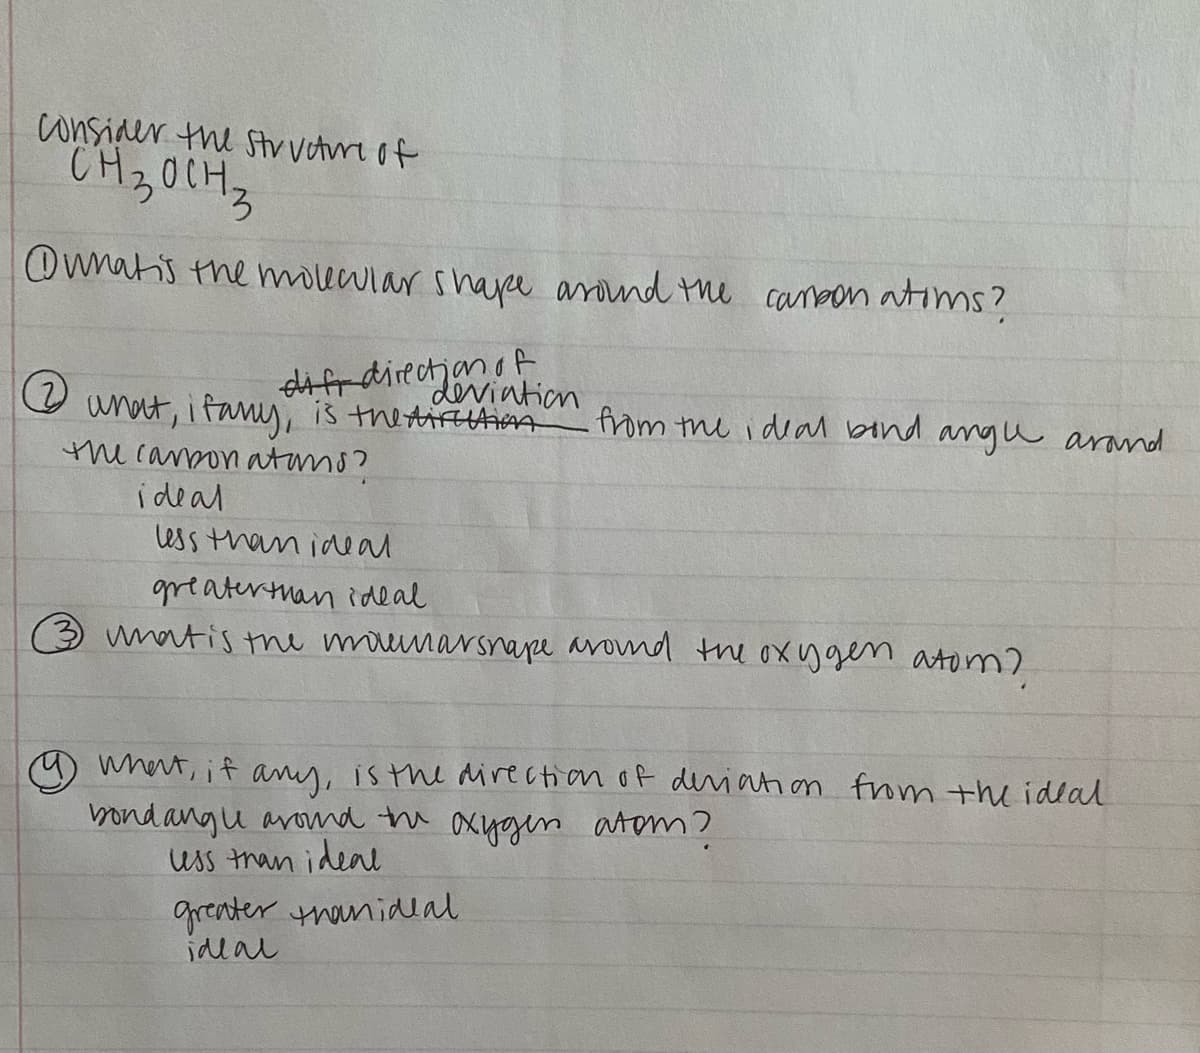 consider the structure of
CH3OCH3
① what is the molecular shape around the carbon atoms?
direction of
deviation
② what, if any, is the from the ideal bond angle around
the carbon atoms?
ideal
less than ideal
greater than ideal
③ what is the molecular shape around the oxygen atom?
④ what, if any, is the direction of deviation from the ideal
bond angle around the oxygen atom?
less than ideal
greater than ideal
ideal